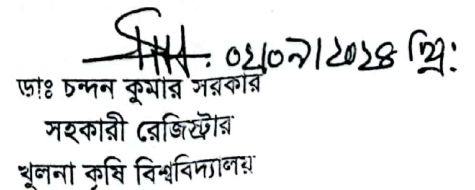 খ্রি:
ডাঃ চন্দন কুমার সরকার
সহকারী রেজিস্ট্রার
খুলনা কৃষি বিশ্ববিদ্যালয়